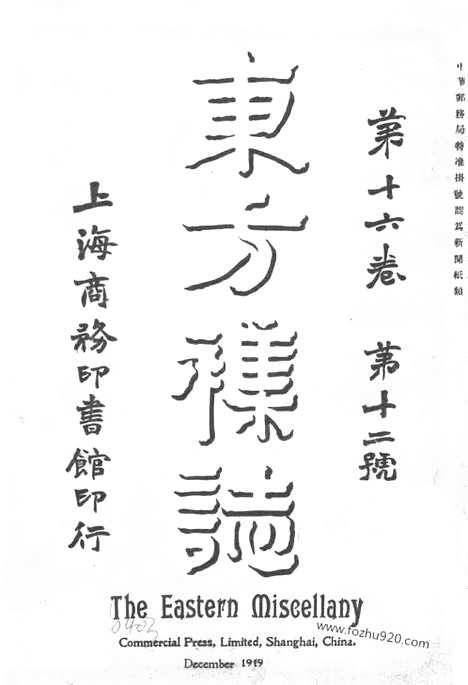 中華郵務局特准掛號認爲新聞紙類
第十六卷 第十二號
東方雜誌
上海商務印書館印行
The Eastern Miscellany
Commercial Press, Limited, Shanghai, China.
December 1919
www.fozhu920.com